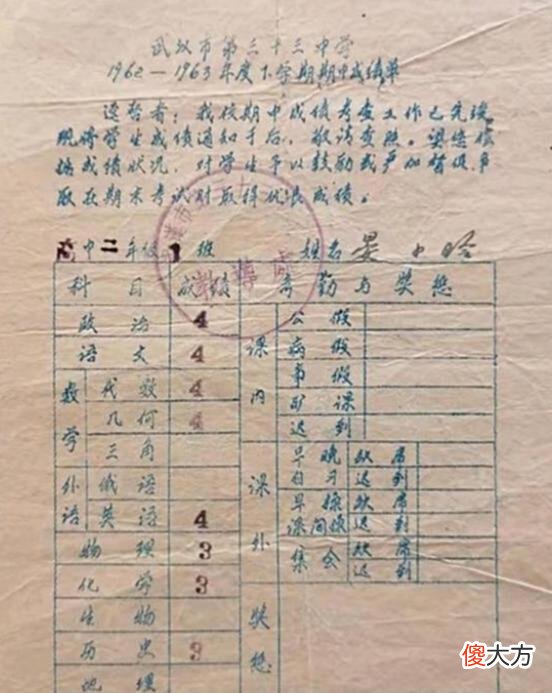 武汉市第三十三中学
1962—1963年度下学期期中成绩单
贵家长：我校期中成绩考查工作已完竣
现将学生成绩通知于后，敬请查照。
成绩状况，对学生予以鼓励或严加督促争
取在期末考试时取得优良成绩。
高中二年级1班 姓名
科目 成绩 考勤与奖惩
政治 4 课内 公假
语文 4 病假
数学 代数 4 事假
几何 4 旷课
三角 迟到
外语 俄语 课外 早晚自习 缺席
迟到
英语 4 早操课间操 缺席
迟到
物理 3 集会 缺席
迟到
化学 3 奖惩
生物
历史 3
地理
傻大方